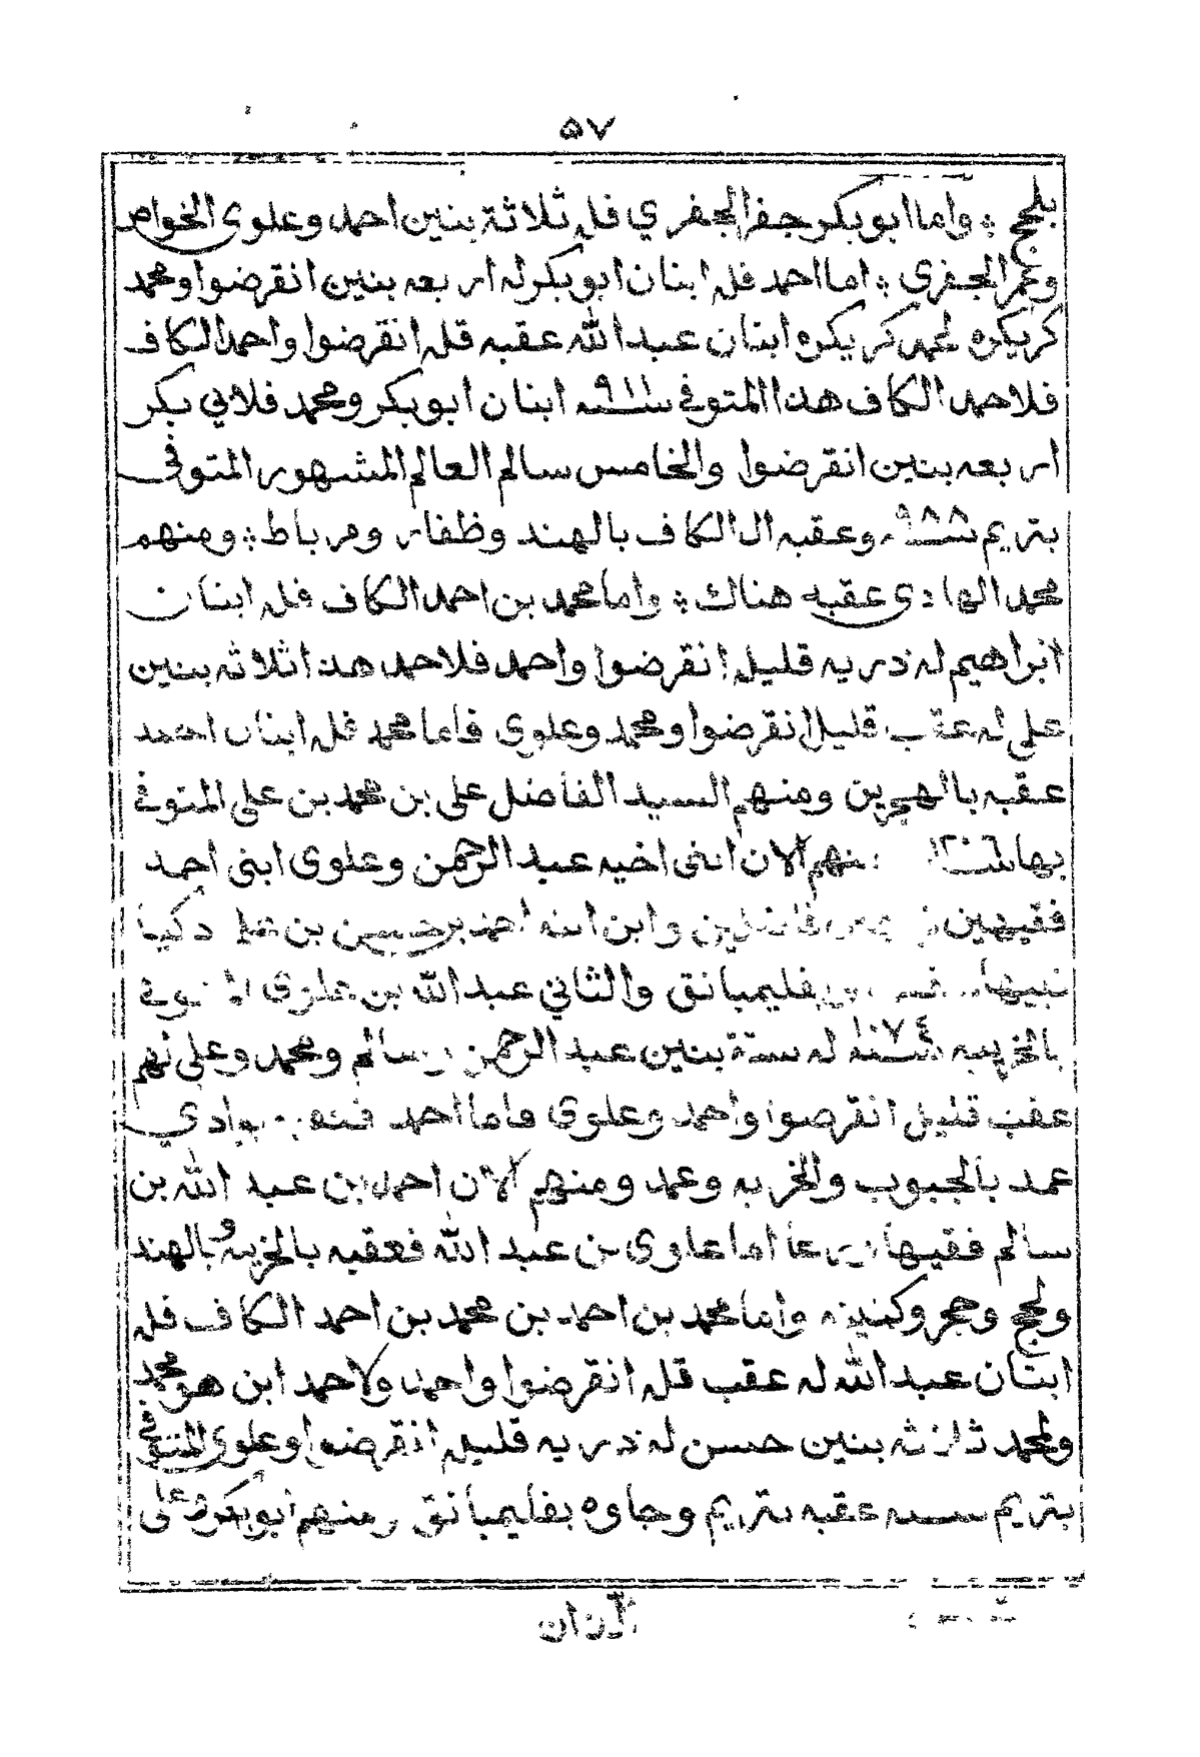 ٥٧
بلحج ؞ واما ابوبكر جفر الجفري فله ثلاثة بنين احمد وعلوى الخواص
وعمر الجفرى ؞ اما احمد فله ابنان ابوبكر له اربعه بنين انقرضوا ومحمد
كريكره لمحمد كريكره ابنان عبدالله عقبه قله انقرضوا واحمد الكاف
فلاحمد الكاف هذا المتوفى سنه ٩١١ ابنان ابوبكر ومحمد فلابي بكر
اربعه بنين انقرضوا والخامس سالم العالم المشهور المتوفى
بتريم سنه ٩٨٨ وعقبه ال الكاف بالهند وظفار ومرباط ؞ ومنهم
محمد الهادى عقبه هناك ؞ واما محمد بن احمد الكاف فله ابنان
ابراهيم له ذريه قليله انقرضوا واحمد فلاحمد هذا ثلاثه بنين
على له عقب قليل انقرضوا ومحمد وعلوى فاما محمد فله ابنان احمد
عقبه بالهجرين ومنهم السيد الفاضل على بن محمد بن على المتوفى
بها سنة ١٢٠٦ منهم الان ابنى اخيه عبد الرحمن وعلوى ابنى احمد
فقيهين وابن ابنه احمد بن حسين بن
نبيها بفليمبانق والثاني عبدالله بن علوى المتوفى
بالخريبه سنه ١٠٧٤ له ستة بنين عبد الرحمن وسالم ومحمد وعلى لهم
عقب قليل انقرضوا واحمد وعلوى فاما احمد بوادي
عمد بالجبوب والخربه وعمد ومنهم الان احمد بن عبد الله بن
سالم فقيها اما علوى بن عبد الله فعقبه بالخريبه وبالهند
ولحج وحجر وكنينه واما محمد بن احمد بن محمد بن احمد الكاف فله
ابنان عبدالله له عقب قله انقرضوا واحمد ولاحمد ابن هو محمد
ولمحمد ثلاثه بنين حسن له ذريه قليله انقرضوا وعلوى المتوفى
بتريم سنه عقبه بتريم وجاوه بفليمبانق ومنهم ابوبكر وعلى